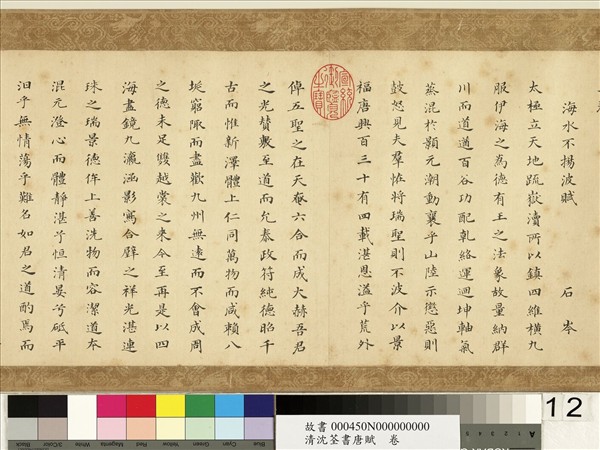 海水不揚波賦
石岑
太極立天地疏嶽瀆所以鎮四維橫九
服伊海之為德有王之法象故量納群
川而道遒百谷功配乾絡運迴坤軸氣
蒸混於顥元潮動襄乎山陸示懲惡則
鼓怒見夫羣怪將瑞聖則不波介以景
福唐興百三十有四載湛恩溢乎荒外
倬五聖之在天奄六合而成大赫吾君
之光贊敷至道而允泰政符純德昭千
古而惟新澤體上仁同萬物而咸賴八
埏窮陬而盡歡九州無遠而不會成周
之德未足雙越裳之來今至再是以四
海盡鏡九瀛涵影寫合璧之祥光湛連
珠之瑞景德侔上善洗物而容潔道夲
混元澄心而體靜湛兮恒清晏兮砥平
汩乎無情蕩乎難名如君之道酌焉而
宣統御覽之寶
12
故書 000450N000000000
清沈荃書唐賦 卷
Black
3/Color
White
Magenta
Red
Yellow
Green
Cyan
Blue
A